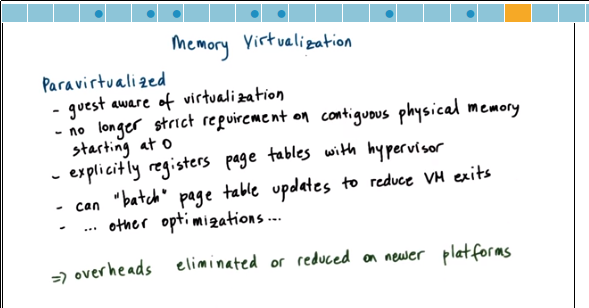 Memory Virtualization
Paravirtualized
- guest aware of virtualization
- no longer strict requirement on contiguous physical memory
starting at 0
- explicitly registers page tables with hypervisor
- can "batch" page table updates to reduce VM exits
- ... other optimizations...
=> overheads eliminated or reduced on newer platforms